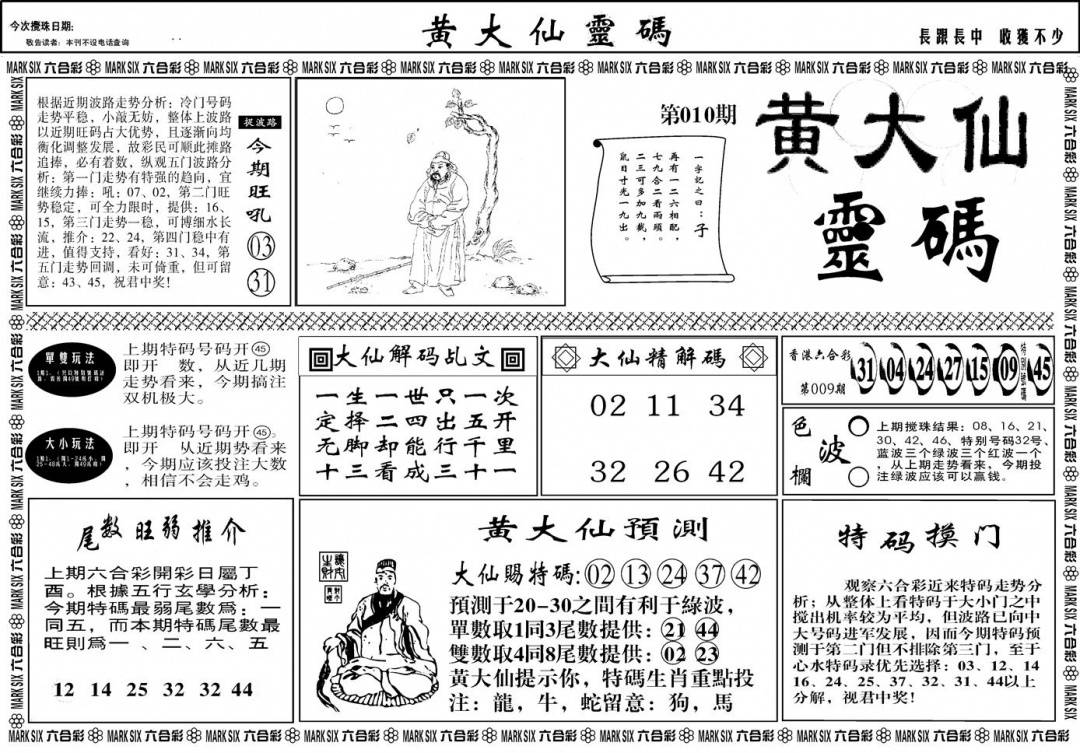 今次攪珠日期:
敬告读者：本刊不设电话查询
黄大仙靈碼
長跟長中 收獲不少
MARK SIX 六合彩 MARK SIX 六合彩 MARK SIX 六合彩 MARK SIX 六合彩 MARK SIX 六合彩 MARK SIX 六合彩 MARK SIX 六合彩 MARK SIX 六合彩 MARK SIX 六合彩 MARK SIX 六合彩 MARK SIX 六合彩
根据近期波路走势分析：冷门号码
走势平稳，小敲无妨，整体上波路
以近期旺码占大优势，且逐渐向均
衡化调整发展，故彩民可顺此摊路
追捧，必有着数，纵观五门波路分
析：第一门走势有特强的趋向，宜
继续力捧：吼：07、02，第二门旺
势稳定，可全力限时，提供：16、
15，第三门走势一稳，可博细水长
流，推介：22、24，第四门稳中有
进，值得支持，看好：31、34，第
五门走势回调，未可倚重，但可留
意：43、45，祝君中奖!
捉波路
今期旺吼
03
31
第010期
一字记之曰：子
再有一二六相配，
七九合二看两頭。
二三可多加九載，
鼠目寸光一九出。
黄大仙
靈碼
單雙玩法
上期特码号码开㊺
即开 数，从近几期
走势看来，今期搞注
双机极大。
大小玩法
上期特码号码开㊺。
即开 从近期势看来
，今期应该投注大数
，相信不会走鸡。
大仙解码乩文
一生一世只一次
定择二四出五开
无脚却能行千里
十三看成三十一
大仙精解碼
02 11 34
32 26 42
香港六合彩
第009期
31 04 24 27 15 09 特别號碼 45
色波欄
上期搅珠结果：08、16、21、
30、42、46、特别号码32号、
蓝波三个绿波三个红波一个
，从上期走势看来，今期投
注绿波应该可以赢钱。
尾数旺弱推介
上期六合彩開彩日屬丁
酉。根據五行玄學分析：
今期特碼最弱尾數爲：一
同五，而本期特碼尾數最
旺則爲一 、二、六、五
12 14 25 32 32 44
黄大仙預測
大仙賜特碼:02 13 24 37 42
預測于20-30之間有利于綠波，
單數取1同3尾數提供：21 44
雙數取4同8尾數提供：02 23
黄大仙提示你，特碼生肖重點投
注：龍，牛，蛇留意：狗，馬
特码摸门
观察六合彩近来特码走势分
析；从整体上看特码于大小门之中
搅出机率较为平均，但波路已向中
大号码进军发展，因而今期特码预
测于第二门但不排除第三门，至于
心水特码录优先选择：03、12、14
16、24、25、37、32、31、44以上
分解，祝君中奖!
MARK SIX 六合彩 MARK SIX 六合彩 MARK SIX 六合彩 MARK SIX 六合彩 MARK SIX 六合彩 MARK SIX 六合彩 MARK SIX 六合彩 MARK SIX 六合彩 MARK SIX 六合彩 MARK SIX 六合彩 MARK SIX 六合彩